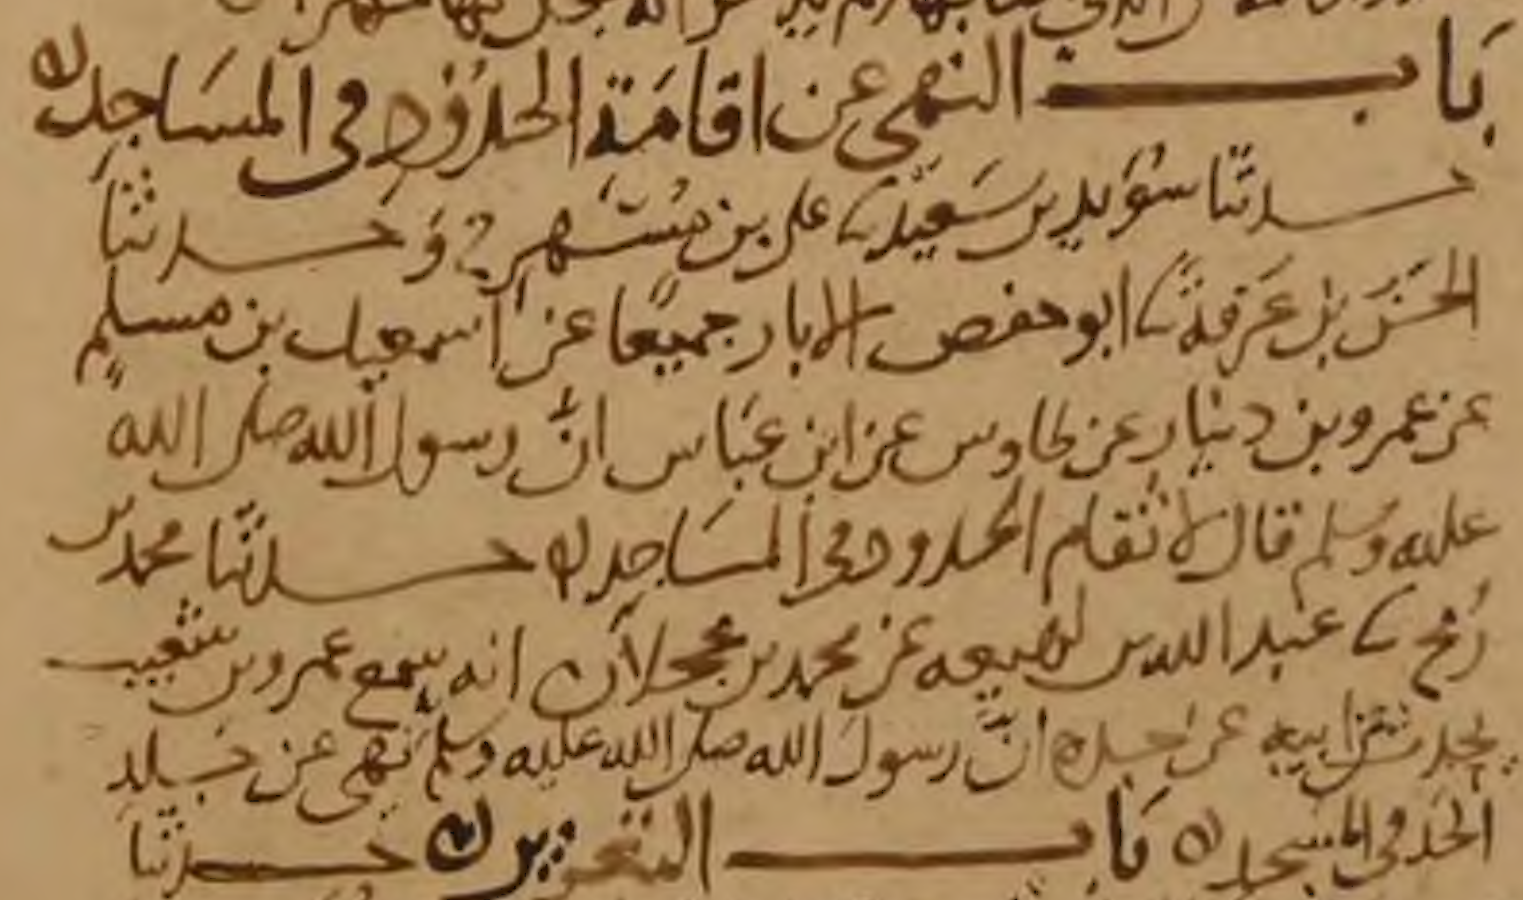 باب النهى عن اقامة الحدود فى المساجد ه
حدثنا سويد بن سعيد ثنا على بن مسهر ح وحدثنا
الحسن بن عرفة ثنا ابو حفص الابار جميعا عن اسمعيل بن مسلم
عن عمرو بن دينار عن طاوس عن ابن عباس ان رسول الله صلى الله
عليه وسلم قال لا تقام الحدود فى المساجد ه حدثنا محمد بن
رمح ثنا عبد الله بن لهيعه عن محمد بن عجلان انه سمع عمرو بن شعيب
يحدث عن ابيه عن جده ان رسول الله صلى الله عليه وسلم نهى عن جلد
الحد فى المسجد ه باب التعزير ه حدثنا